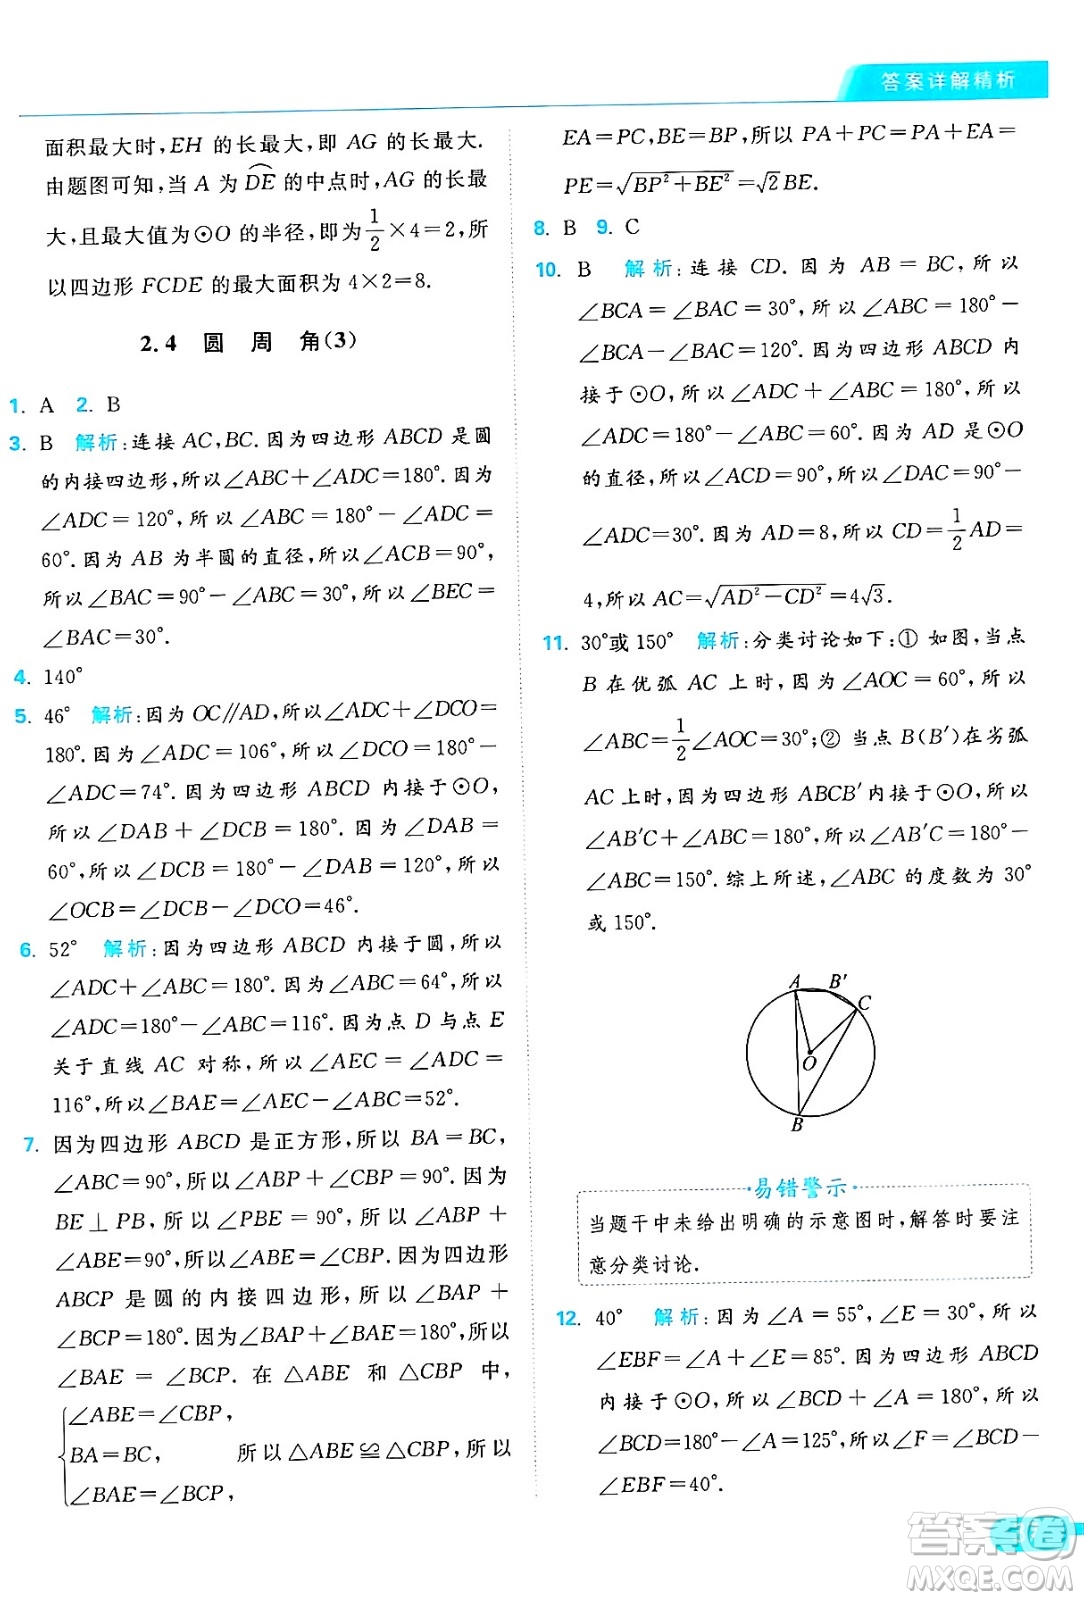 答案详解精析
面积最大时,EH 的长最大,即 AG 的长最大.
由题图可知,当 A 为 DE 的中点时,AG 的长最
大,且最大值为⊙O 的半径,即为 1/2 ×4=2,所
以四边形 FCDE 的最大面积为 4×2=8.
2.4 圆 周 角(3)
1. A 2. B
3. B 解析:连接 AC,BC.因为四边形 ABCD 是圆
的内接四边形,所以∠ABC+∠ADC=180°.因为
∠ADC=120°,所以∠ABC=180°-∠ADC=
60°.因为 AB 为半圆的直径,所以∠ACB=90°,
所以∠BAC=90°-∠ABC=30°,所以∠BEC=
∠BAC=30°.
4. 140°
5. 46° 解析:因为 OC∥AD,所以∠ADC+∠DCO=
180°.因为∠ADC=106°,所以∠DCO=180°-
∠ADC=74°.因为四边形 ABCD 内接于⊙O,
所以∠DAB+∠DCB=180°.因为∠DAB=
60°,所以∠DCB=180°-∠DAB=120°,所以
∠OCB=∠DCB-∠DCO=46°.
6. 52° 解析:因为四边形 ABCD 内接于圆,所以
∠ADC+∠ABC=180°.因为∠ABC=64°,所以
∠ADC=180°-∠ABC=116°.因为点 D 与点 E
关于直线 AC 对称,所以∠AEC=∠ADC=
116°,所以∠BAE=∠AEC-∠ABC=52°.
7. 因为四边形 ABCD 是正方形,所以 BA=BC,
∠ABC=90°,所以∠ABP+∠CBP=90°.因为
BE⊥PB,所以∠PBE=90°,所以∠ABP+
∠ABE=90°,所以∠ABE=∠CBP.因为四边形
ABCP 是圆的内接四边形,所以∠BAP+
∠BCP=180°.因为∠BAP+∠BAE=180°,所以
∠BAE=∠BCP.在△ABE 和△CBP 中,
∠ABE=∠CBP,
BA=BC, 所以△ABE≌△CBP,所以
∠BAE=∠BCP,
EA=PC,BE=BP,所以 PA+PC=PA+EA=
PE=√(BP²+BE²)=√2BE.
8. B 9. C
10. B 解析:连接 CD.因为 AB=BC,所以
∠BCA=∠BAC=30°,所以∠ABC=180°-
∠BCA-∠BAC=120°.因为四边形 ABCD 内
接于⊙O,所以∠ADC+∠ABC=180°,所以
∠ADC=180°-∠ABC=60°.因为 AD 是⊙O
的直径,所以∠ACD=90°,所以∠DAC=90°-
∠ADC=30°.因为 AD=8,所以 CD=1/2 AD=
4,所以 AC=√(AD²-CD²)=4√3.
11. 30°或150° 解析:分类讨论如下:① 如图,当点
B 在优弧 AC 上时,因为∠AOC=60°,所以
∠ABC=1/2∠AOC=30°;② 当点 B(B′)在劣弧
AC 上时,因为四边形 ABCB′内接于⊙O,所以
∠AB′C+∠ABC=180°,所以∠AB′C=180°-
∠ABC=150°.综上所述,∠ABC 的度数为30°
或150°.
A B′
C
O
B
·易错警示·
当题干中未给出明确的示意图时,解答时要注
意分类讨论.
12. 40° 解析:因为∠A=55°,∠E=30°,所以
∠EBF=∠A+∠E=85°.因为四边形 ABCD
内接于⊙O,所以∠BCD+∠A=180°,所以
∠BCD=180°-∠A=125°,所以∠F=∠BCD-
∠EBF=40°.
答案卷
MXQE.COM